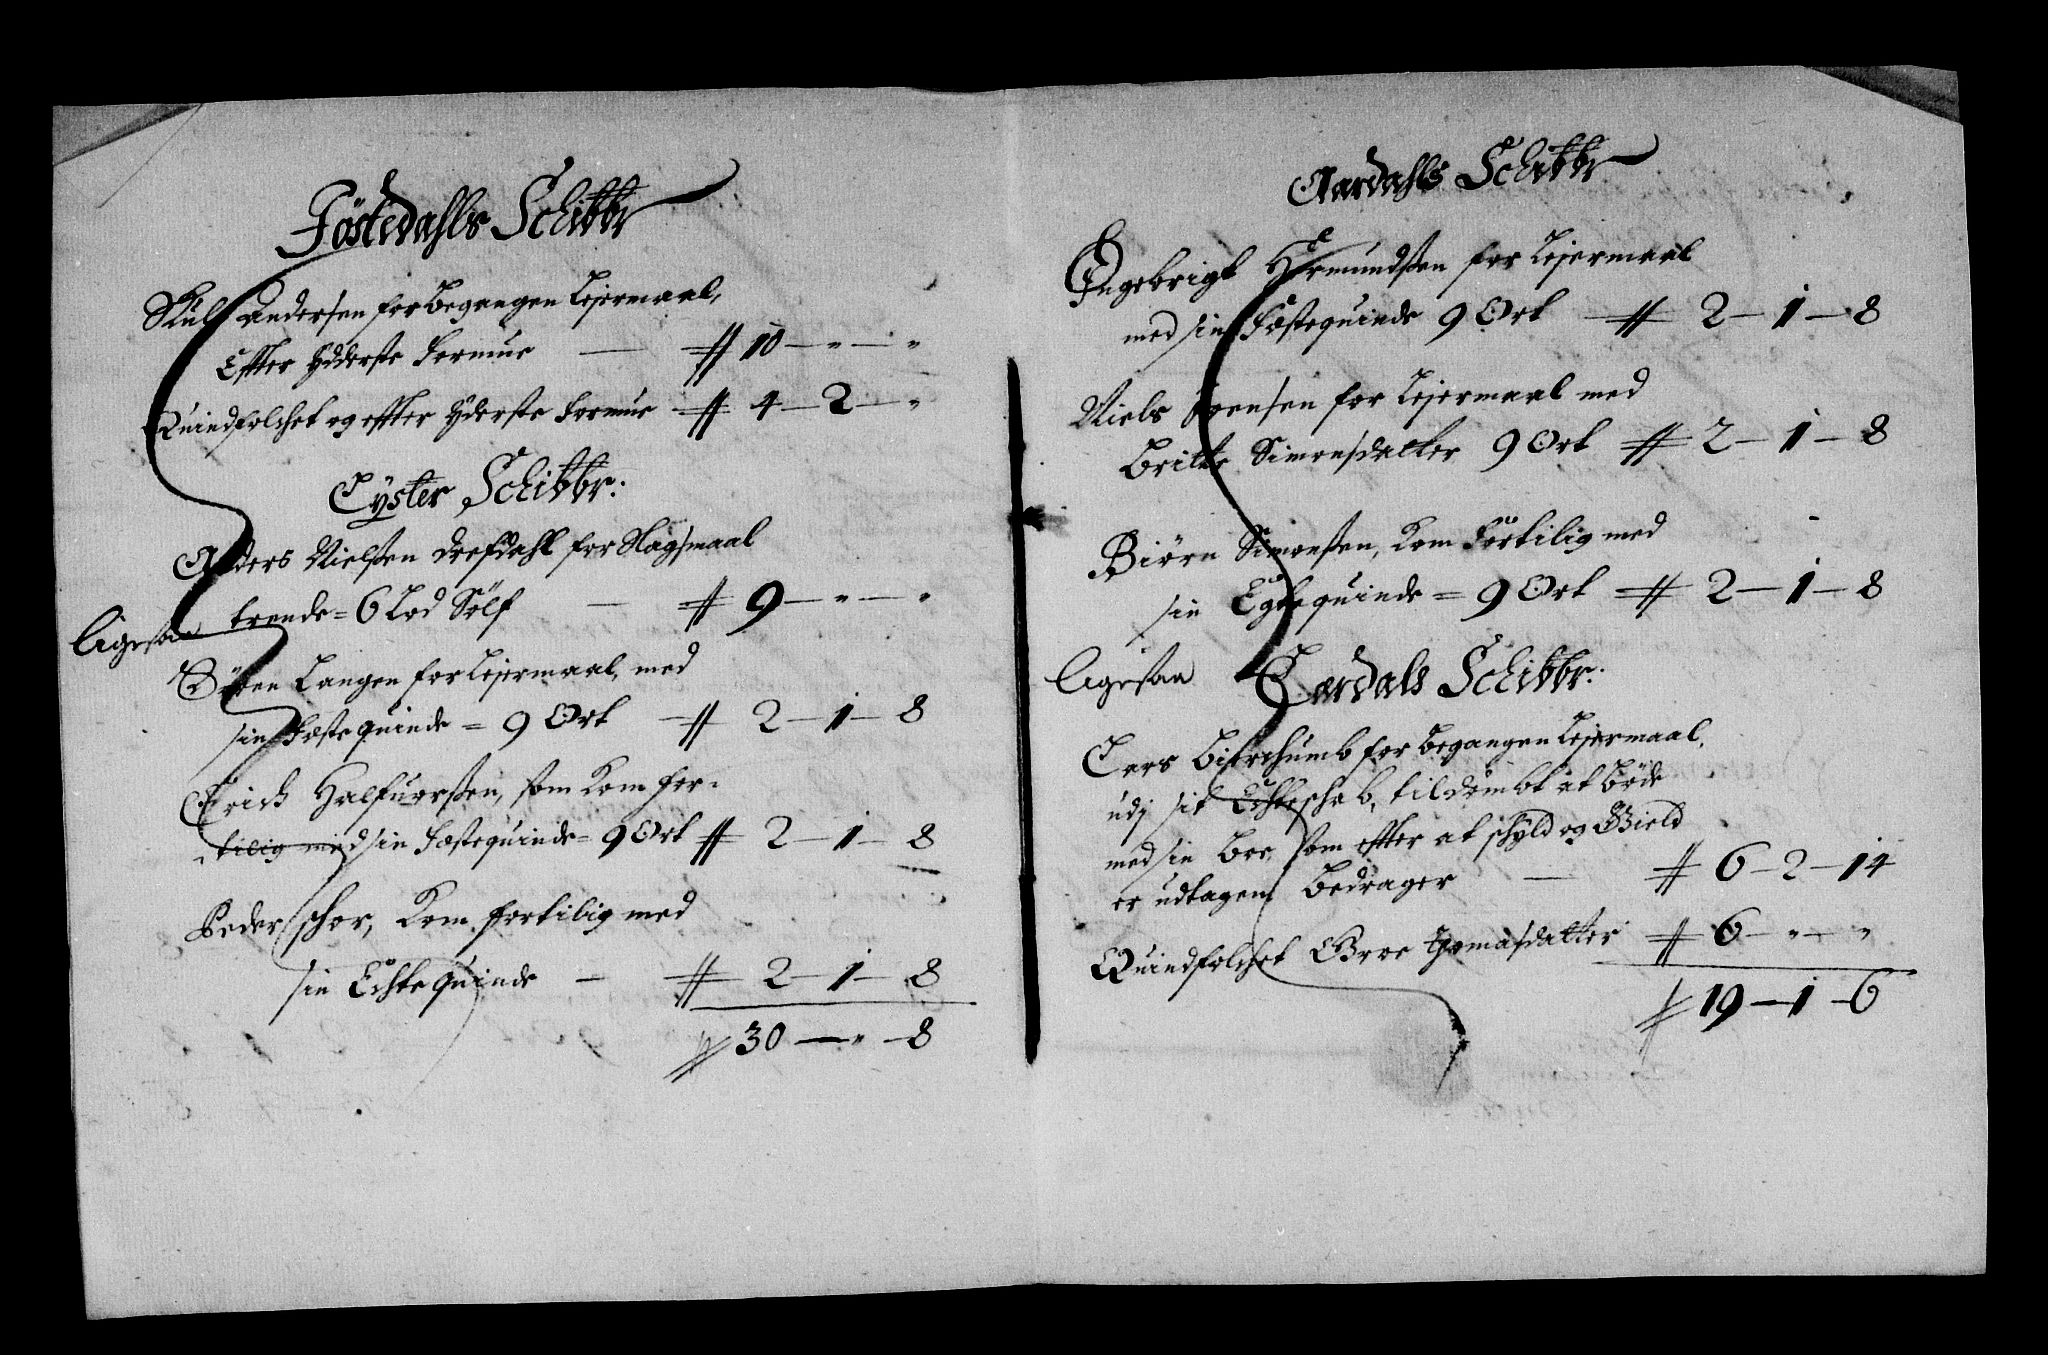 Jöstedahls Schibbr
Skul Andersen for begangen Lejermaal,
Effter Yderste formue — # 10 — „ — „
Quindfolchet og effter Yderste formue # 4 — 2 — „
Lyster Schibbr:
Anders Nielsen Drefdahl for Slagsmaal
trende = 6 Lod Sölf — # 9 — „ — „
ligesaa
Sören Langen for Lejermaal, med
sin Festequinde = 9 Ort # 2 — 1 — 8
Erich Halfuorsen, som Kom for-
tilig med sin Festequinde = 9 Ort # 2 — 1 — 8
Peder schor, Kom fortilig med
sin Echtequinde — # 2 — 1 — 8
# 30 — „ — 8
Aardahls Schibbr
Engebrigt Hermundsen for Lejermaal
med sin Festequinde 9 Ort — # 2 — 1 — 8
Niels Joensen for Lejermaal med
Britte Simonsdatter 9 Ort # 2 — 1 — 8
Biörn Simonsen, Kom Förtilig med
sin Egtequinde = 9 Ort # 2 — 1 — 8
ligesaa
Lærdals Schibbr:
Lars for begangen Lejermaal,
udj sit Echteschab, tildömbt at böde
med sin Boe, som effter at schyld og Gield
er udtagen, bedrager — # 6 — 2 — 14
Quindfolchet Groe Thomasdatter # 6 — „ — „
# 19 — 1 — 6